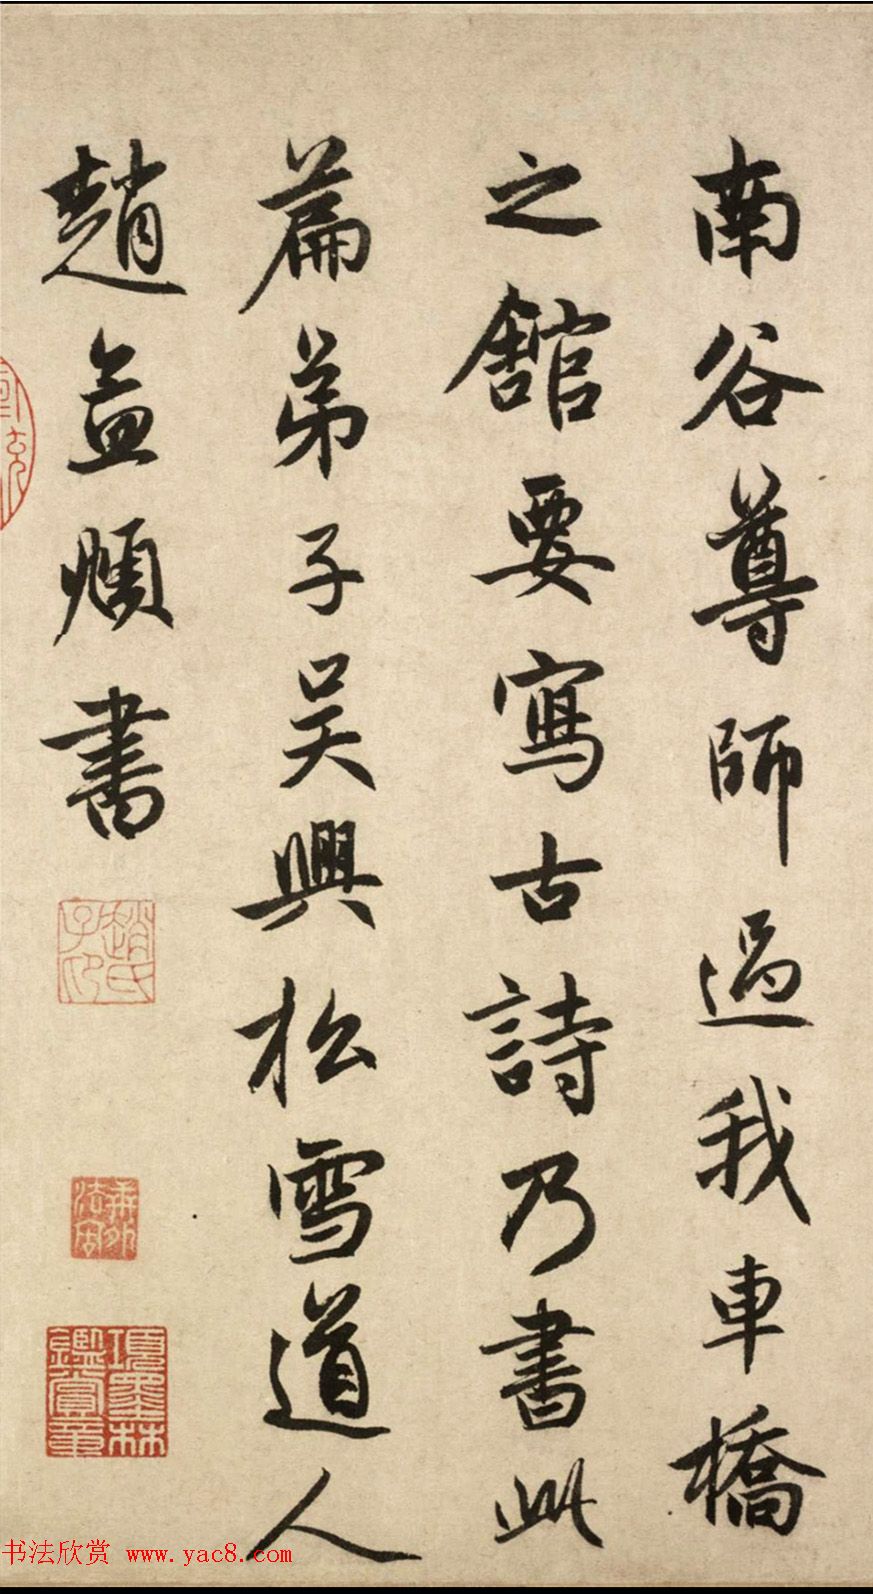 南谷尊師過我車橋
之館要寫古詩乃書此
篇弟子吴興松雪道人
趙孟頫書
趙氏子印
項墨林鑑賞章
书法欣赏 www.yac8.com